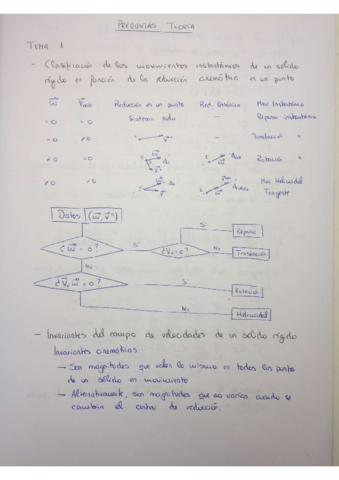 PREGUNTAS TEORÍA
TEMA 1
- Clasificación de los movimientos instantáneos de un sólido
rígido en función de la reducción cinemática en un punto
ω⃗ Reducción en un punto Red. Canónica Mov Instantáneo
=0 =0 Sistema nulo - Reposo instantáneo
=0 ≠0 - Traslación "
≠0 =0 Rotación "
≠0 ≠0 Mov Helicoidal
Tangente
Datos (ω⃗, v⃗°)
¿ω⃗ = 0? Sí ¿V₀ = 0? Sí Reposo
No Traslación
No
¿V₀ ω⃗ = 0? Sí Rotación
No Helicoidal
- Invariantes del campo de velocidades de un sólido rígido
Invariantes cinemáticos
→ Son magnitudes que valen lo mismo en todos los puntos
de un sólido en movimiento
→ Alternativamente, son magnitudes que no varían cuando se
cambian el centro de reducción.